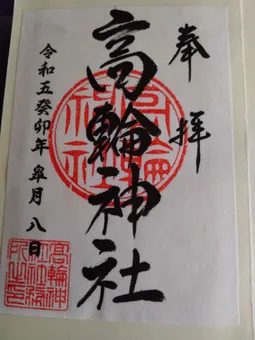 奉拝
高輪神社
令和五癸卯年皐月八日
高輪神社
高輪神社務所之印